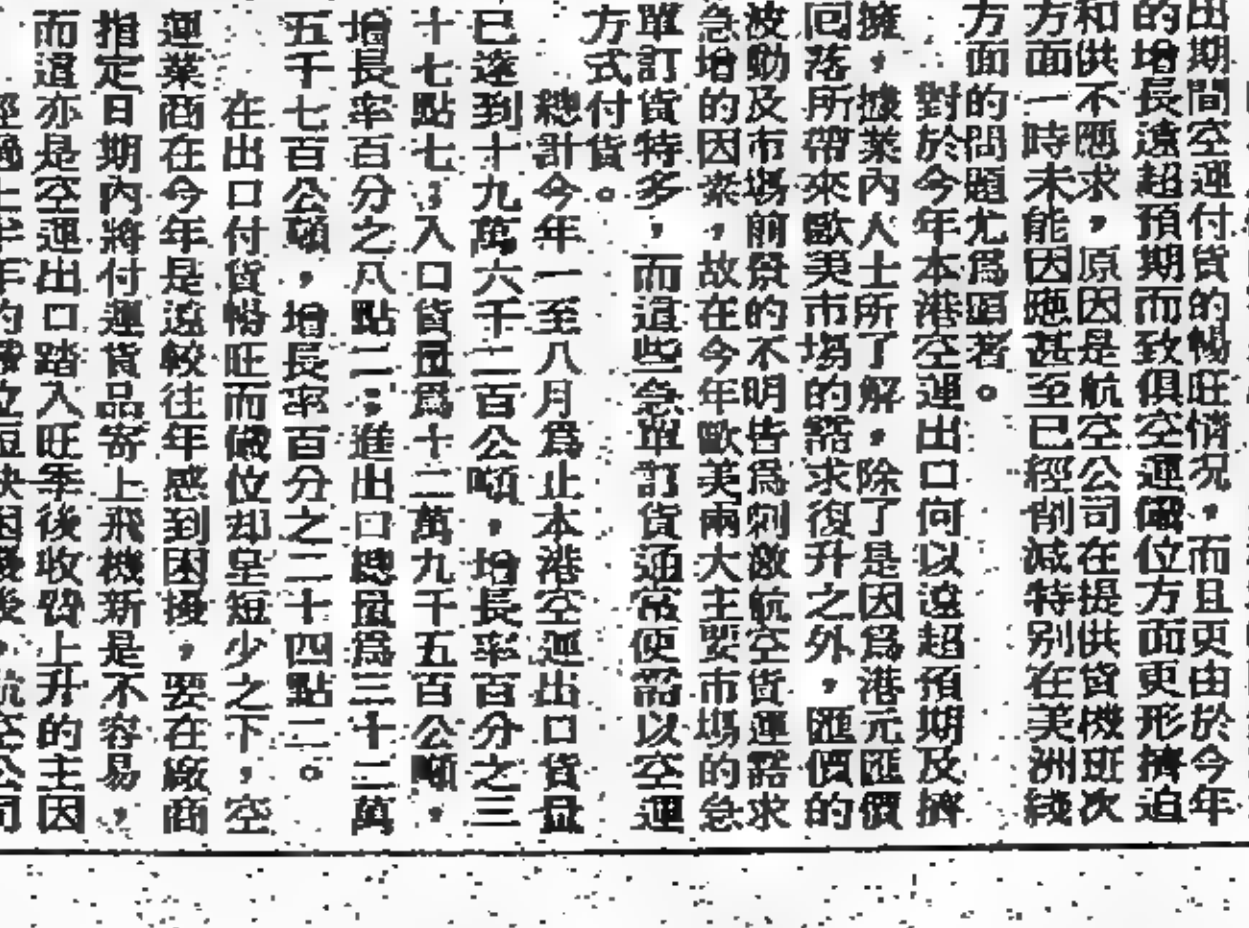 出期間空運付貨的暢旺情況，而且更由於今年
的增長遠超預期而致俱空運艙位方面更形擠迫
和供不應求，原因是航空公司在提供貨機班次
方面一時未能因應甚至已經削減特別在美洲綫
方面的問題尤爲顯著。
對於今年本港空運出口何以遠超預期及擠
擁，據業內人士所了解，除了是因爲港元匯價
回落所帶來歐美市場的需求復升之外，匯價的
波動及市場前景的不明皆爲刺激航空貨運需求
急增的因素，故在今年歐美兩大主要市場的急
單訂貨特多，而這些急單訂貨通常便需以空運
方式付貨。
總計今年一至八月爲止本港空運出口貨量
已達到十九萬六千二百公噸，增長率百分之三
十七點七；入口貨量爲十二萬九千五百公噸，
增長率百分之八點二；進出口總量爲三十二萬
五千七百公噸，增長率百分之二十四點二。
在出口付貨暢旺而艙位却呈短少之下，空
運業商在今年是遠較往年感到困擾，要在廠商
指定日期內將付運貨品寄上飛機新是不容易，
而這亦是空運出口踏入旺季後收費上升的主因
經過上半年的艙位短缺困擾後，航空公司